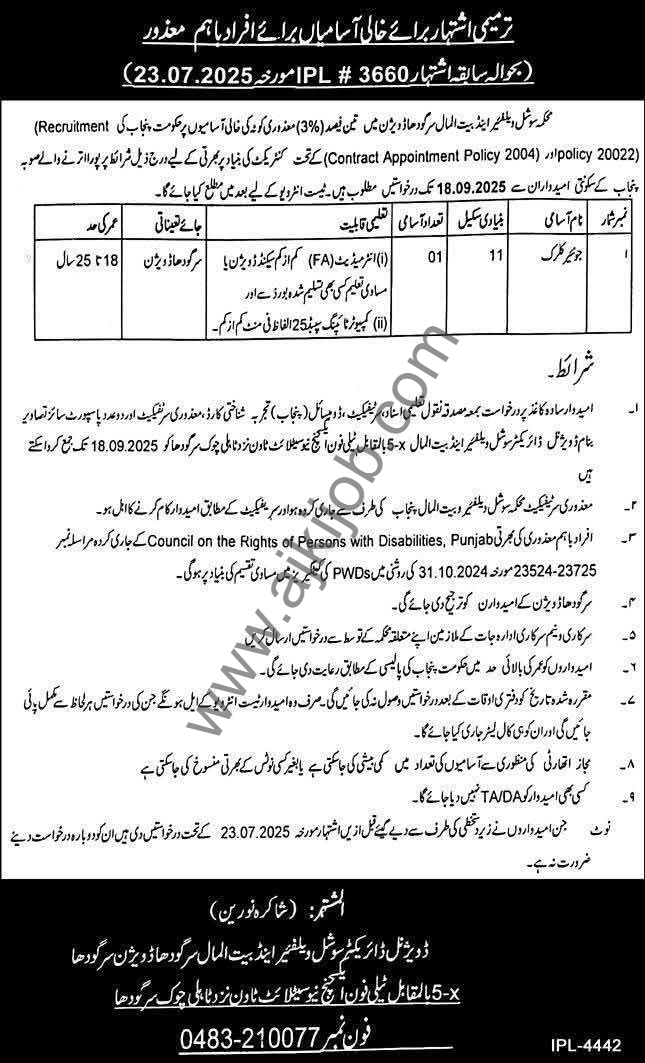 ترمیمی اشتہار برائے خالی آسامیاں برائے افراد باہم معذور
(بحوالہ سابقہ اشتہار IPL # 3660 مورخہ 23.07.2025)
محکمہ سوشل ویلفیئر اینڈ بیت المال سرگودھا ڈویژن میں تین فیصد (3%) معذوری کوٹہ کی خالی آسامیوں پر حکومت پنجاب کی (Recruitment
policy 20022) اور (Contract Appointment Policy 2004) کے تحت کنٹریکٹ کی بنیاد پر بھرتی کے لیے درج ذیل شرائط پر پورا اترنے والے صوبہ
پنجاب کے سکونتی امیدواران سے 18.09.2025 تک درخواستیں مطلوب ہیں۔ ٹیسٹ انٹرویو کے لیے بعد میں مطلع کیا جائے گا۔
نمبر شمار نام آسامی بنیادی سکیل تعداد آسامی تعلیمی قابلیت جائے تعیناتی عمر کی حد
۱ جونیئر کلرک 11 01 (i) انٹرمیڈیٹ (FA) کم از کم سیکنڈ ڈویژن یا سرگودھا ڈویژن 18 تا 25 سال
مساوی تعلیم کسی بھی تسلیم شدہ بورڈ سے اور
(ii) کمپیوٹر ٹائپنگ سپیڈ 25 الفاظ فی منٹ کم از کم۔
شرائط۔
۱۔ امیدوار سادہ کاغذ پر درخواست بمعہ مصدقہ نقول تعلیمی اسناد، سرٹیفکیٹ، ڈومیسائل (پنجاب) تجربہ شناختی کارڈ، معذوری سرٹیفکیٹ اور دو عدد پاسپورٹ سائز تصاویر
بنام ڈویژنل ڈائریکٹر سوشل ویلفیئر اینڈ بیت المال 5-x بالمقابل ٹیلی فون ایکسچینج نیو سیٹلائٹ ٹاؤن نزد ٹاہلی چوک سرگودھا کو 18.09.2025 تک جمع کروا سکتے
ہیں
۲۔ معذوری سرٹیفکیٹ محکمہ سوشل ویلفیئر و بیت المال پنجاب کی طرف سے جاری کردہ ہو اور سرٹیفکیٹ کے مطابق امیدوار کام کرنے کا اہل ہو۔
۳۔ افراد باہم معذوری کی بھرتی Council on the Rights of Persons with Disabilities, Punjab کے جاری کردہ مراسلہ نمبر
23524-23725 مورخہ 31.10.2024 کی روشنی میں PWDs کی کیٹیگریز میں مساوی تقسیم کی بنیاد پر ہوگی۔
۴۔ سرگودھا ڈویژن کے امیدواران کو ترجیح دی جائے گی۔
۵۔ سرکاری و نیم سرکاری ادارہ جات کے ملازمین اپنے متعلقہ محکمہ کے توسط سے درخواستیں ارسال کریں
۶۔ امیدواروں کو عمر کی بالائی حد میں حکومت پنجاب کی پالیسی کے مطابق رعایت دی جائے گی۔
۷۔ مقررہ شدہ تاریخ کو دفتری اوقات کے بعد درخواستیں وصول نہ کی جائیں گی۔ صرف وہ امیدوار ٹیسٹ انٹرویو کے اہل ہونگے جن کی درخواستیں ہر لحاظ سے مکمل پائی
جائیں گی اور ان کو ہی کال لیٹر جاری کیا جائے گا۔
۸۔ مجاز اتھارٹی کی منظوری سے آسامیوں کی تعداد میں کمی بیشی کی جاسکتی ہے یا بغیر کسی نوٹس کے بھرتی منسوخ کی جاسکتی ہے
۹۔ کسی بھی امیدوار کو TA/DA نہیں دیا جائے گا۔
نوٹ جن امیدواروں نے زیر دستخطی کی طرف سے دیے گئے قبل ازیں اشتہار مورخہ 23.07.2025 کے تحت درخواستیں دی ہیں ان کو دوبارہ درخواست دینے
ضرورت نہ ہے۔
المشتہر: (شاکرہ نورین)
ڈویژنل ڈائریکٹر سوشل ویلفیئر اینڈ بیت المال سرگودھا ڈویژن سرگودھا
5-x بالمقابل ٹیلی فون ایکسچینج نیو سیٹلائٹ ٹاؤن نزد ٹاہلی چوک سرگودھا
فون نمبر 0483-210077
IPL-4442
www.ajkjob.com